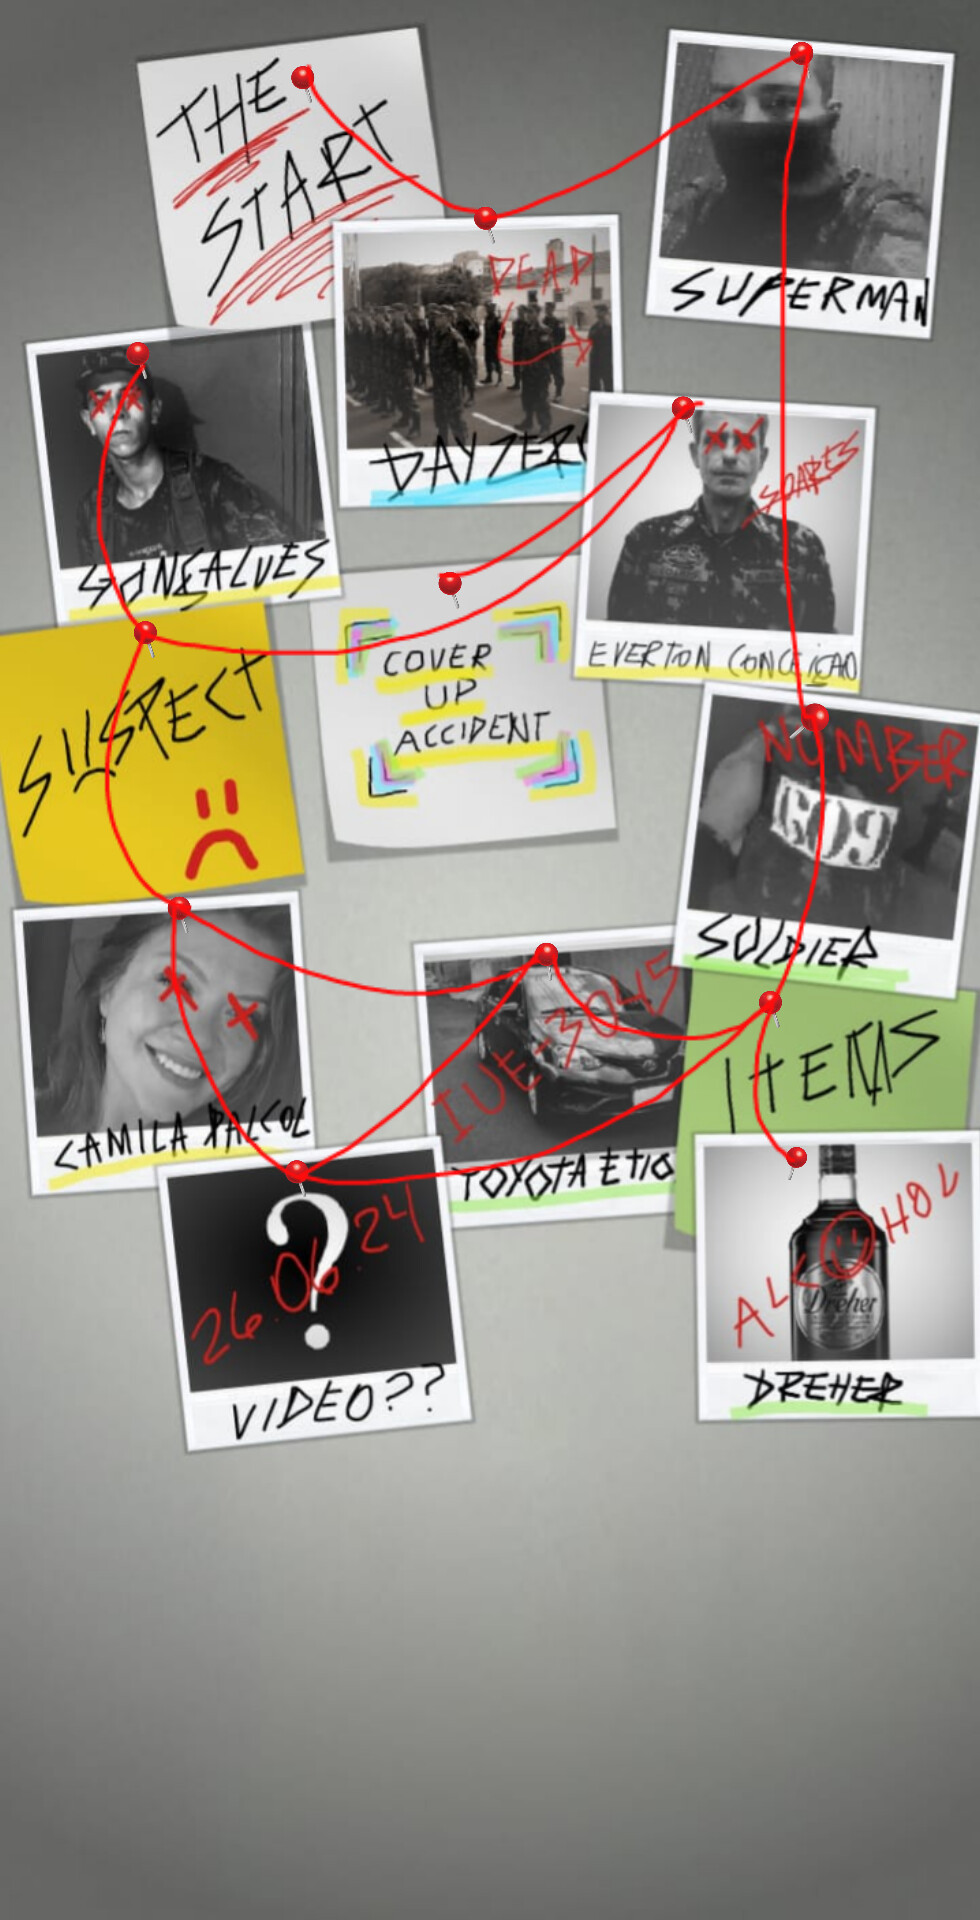 THE
START
SUPERMAN
DEAD
DAY ZERO
GONÇALVES
SOARES
EVERTON CONCEICAO
SUSPECT
COVER
UP
ACCIDENT
NUMBER
609
SOLDIER
CAMILA PALCOL
IUE-3045
TOYOTA ETIO
ITEMS
26.06.24
VIDEO??
ALCOHOL
Dreher
DREHER